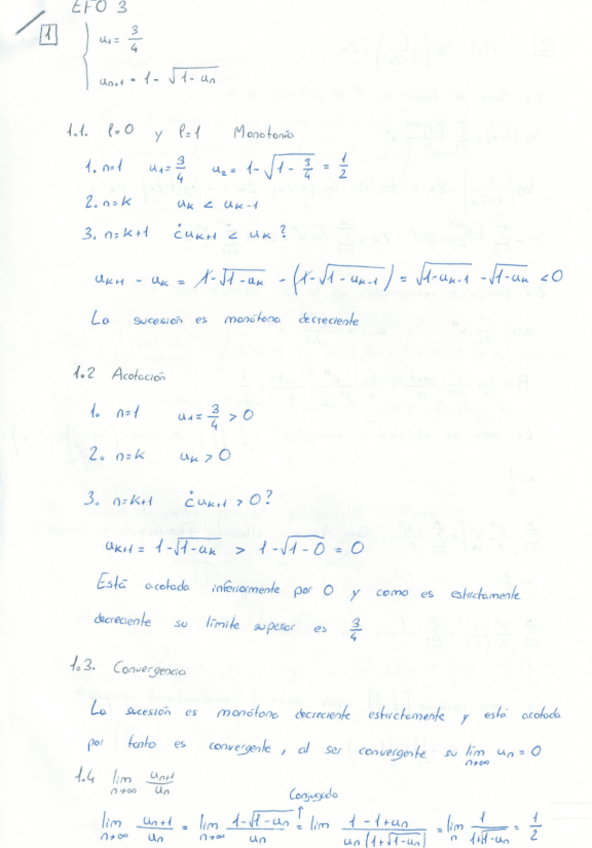 EFO 3
1 { u₁ = 3/4
u_{n+1} = 1 - √(1 - u_n)
1.1. l=0 y l=1 Monotonía
1. n=1 u₁ = 3/4 u₂ = 1 - √(1 - 3/4) = 1/2
2. n=k u_k < u_{k-1}
3. n=k+1 ¿u_{k+1} < u_k?
u_{k+1} - u_k = 1 - √(1-u_k) - (1 - √(1 - u_{k-1})) = √(1-u_{k-1}) - √(1-u_k) < 0
La sucesión es monótona decreciente
1.2 Acotación
1. n=1 u₁ = 3/4 > 0
2. n=k u_k > 0
3. n=k+1 ¿u_{k+1} > 0?
u_{k+1} = 1 - √(1-u_k) > 1 - √(1-0) = 0
Está acotada inferiormente por 0 y como es estrictamente
decreciente su límite superior es 3/4
1.3. Convergencia
La sucesión es monótona decreciente estrictamente y está acotada
por tanto es convergente, al ser convergente su lim_{n→∞} u_n = 0
1.4 lim_{n→∞} u_{n+1}/u_n
Conjugado
lim_{n→∞} u_{n+1}/u_n = lim_{n→∞} (1-√(1-u_n))/u_n = lim (1-1+u_n)/(u_n(1+√(1-u_n))) = lim_n 1/(1+√(1-u_n)) = 1/2